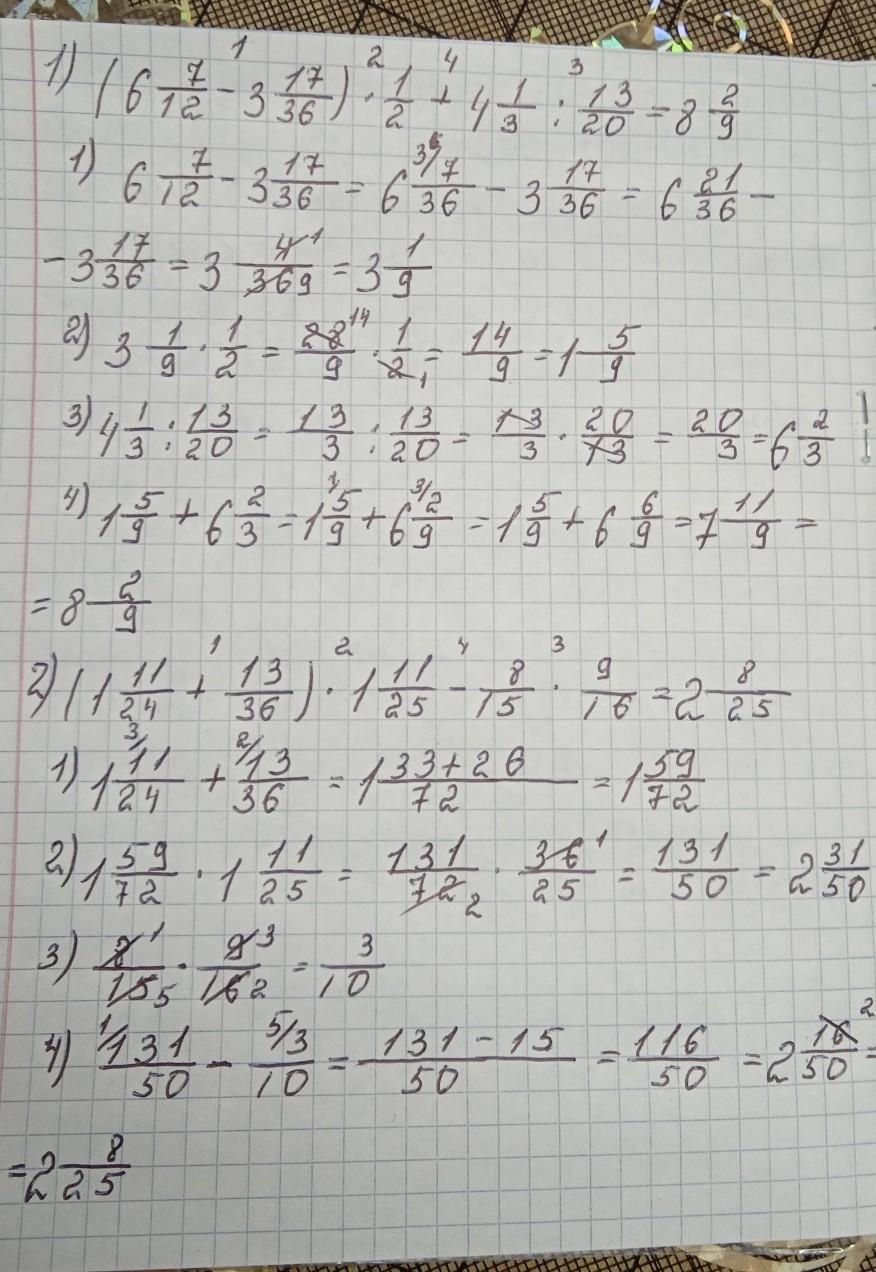 1) (6 7/12 - 3 17/36) · 1/2 + 4 1/3 : 13/20 = 8 2/9
1) 6 7/12 - 3 17/36 = 6 3/7/36 - 3 17/36 = 6 21/36 -
- 3 17/36 = 3 4 1/36 9 = 3 1/9
2) 3 1/9 · 1/2 = 28 14/9 · 1/2 1 = 14/9 = 1 5/9
3) 4 1/3 : 13/20 = 13/3 : 13/20 = 13/3 · 20/13 = 20/3 = 6 2/3
4) 1 5/9 + 6 2/3 = 1 1/5/9 + 6 3/2/9 = 1 5/9 + 6 6/9 = 7 11/9 =
= 8 2/9
2) (1 11/24 + 13/36) · 1 11/25 - 8/15 · 9/16 = 2 8/25
1) 1 3/11/24 + 2/13/36 = 1 33+26/72 = 1 59/72
2) 1 59/72 · 1 11/25 = 131/72 2 · 36 1/25 = 131/50 = 2 31/50
3) 8 1/15 5 · 9 3/16 2 = 3/10
4) 1/131/50 - 5/3/10 = 131-15/50 = 116/50 = 2 16/50 =
= 2 8/25